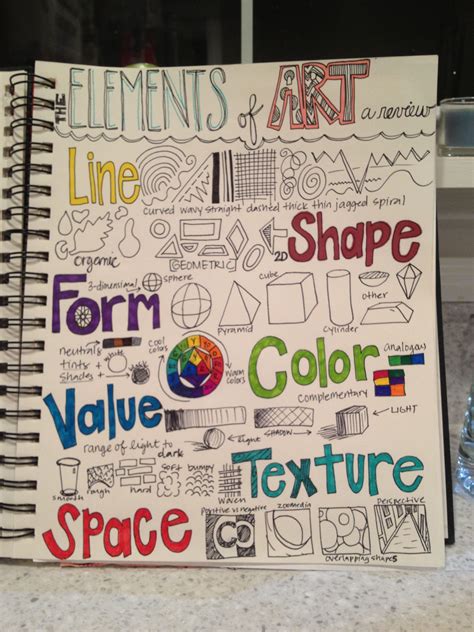 THE ELEMENTS of ART
a review
Line
curved wavy straight dashed thick thin jagged spiral
organic
GEOMETRIC
2D
Shape
Form
3-dimensional
sphere
cube
other
pyramid
cylinder
neutrals
tints +
Shades
white
Cool colors
Warm colors
Color
analogous
complementary
Value
range of light to dark
light
SHADOW
LIGHT
smooth
rough
hard
soft
bumpy
woven
Texture
Space
Positive vs negative
zoomed in
overlapping shapes
Perspective